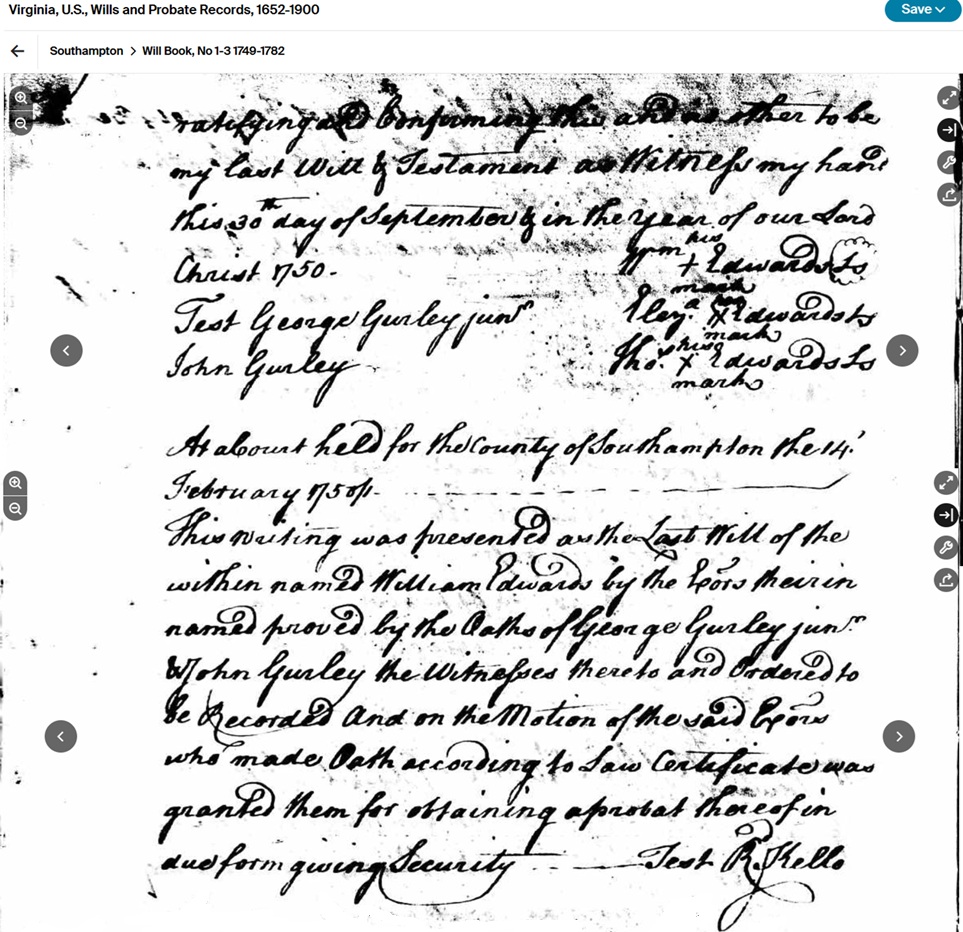 Virginia, U.S., Wills and Probate Records, 1652-1900
Save
Southampton > Will Book, No 1-3 1749-1782
ratifying and Confirming this and no other to be
my last Will & Testament as Witness my hand
this 30th day of September & in the year of our Lord
Christ 1750.
his
Wm + Edwards Ls
mark
Test George Gurley junr
Eliz. X Edwards Ls
mark
John Gurley
his
Tho. X Edwards Ls
mark
At a Court held for the County of Southampton the 14
February 1750/1
This writing was presented as the Last Will of the
within named William Edwards by the Exors therein
named proved by the Oaths of George Gurley junr
& John Gurley the Witnesses thereto and Ordered to
be Recorded And on the Motion of the said Exors
who made Oath according to Law Certificate was
granted them for obtaining a probat thereof in
due form giving Security Test R Kello